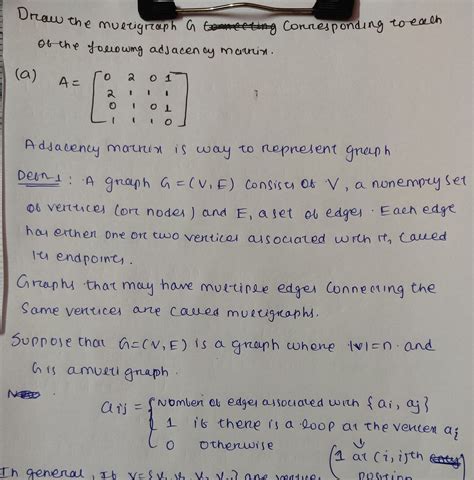 Draw the multigraph G connecting Corresponding to each
of the following adjacency matrix.
(a) A = [0 2 0 1
2 1 1 1
0 1 0 1
1 1 1 0]
Adjacency matrix is way to represent graph
Defn-1 : A graph G = (V, E) consists of V, a nonempty set
of vertices (or nodes) and E, a set of edges. Each edge
has either one or two vertices associated with it, called
its endpoints.
Graphs that may have multiple edges connecting the
same vertices are called multigraphs.
Suppose that G=(V, E) is a graph where |V|=n and
G is a multigraph.
aij = { Number of edges associated with {ai, aj}
1 if there is a loop at the vertex aj
0 otherwise
(1 at (i, i)th entry
position
In general, If V={V1, V2, V3, V4} are vertices